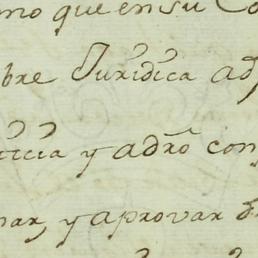 mo que en su Co
bre Juridica ad
ticia y adrō con
nar, y aprovar